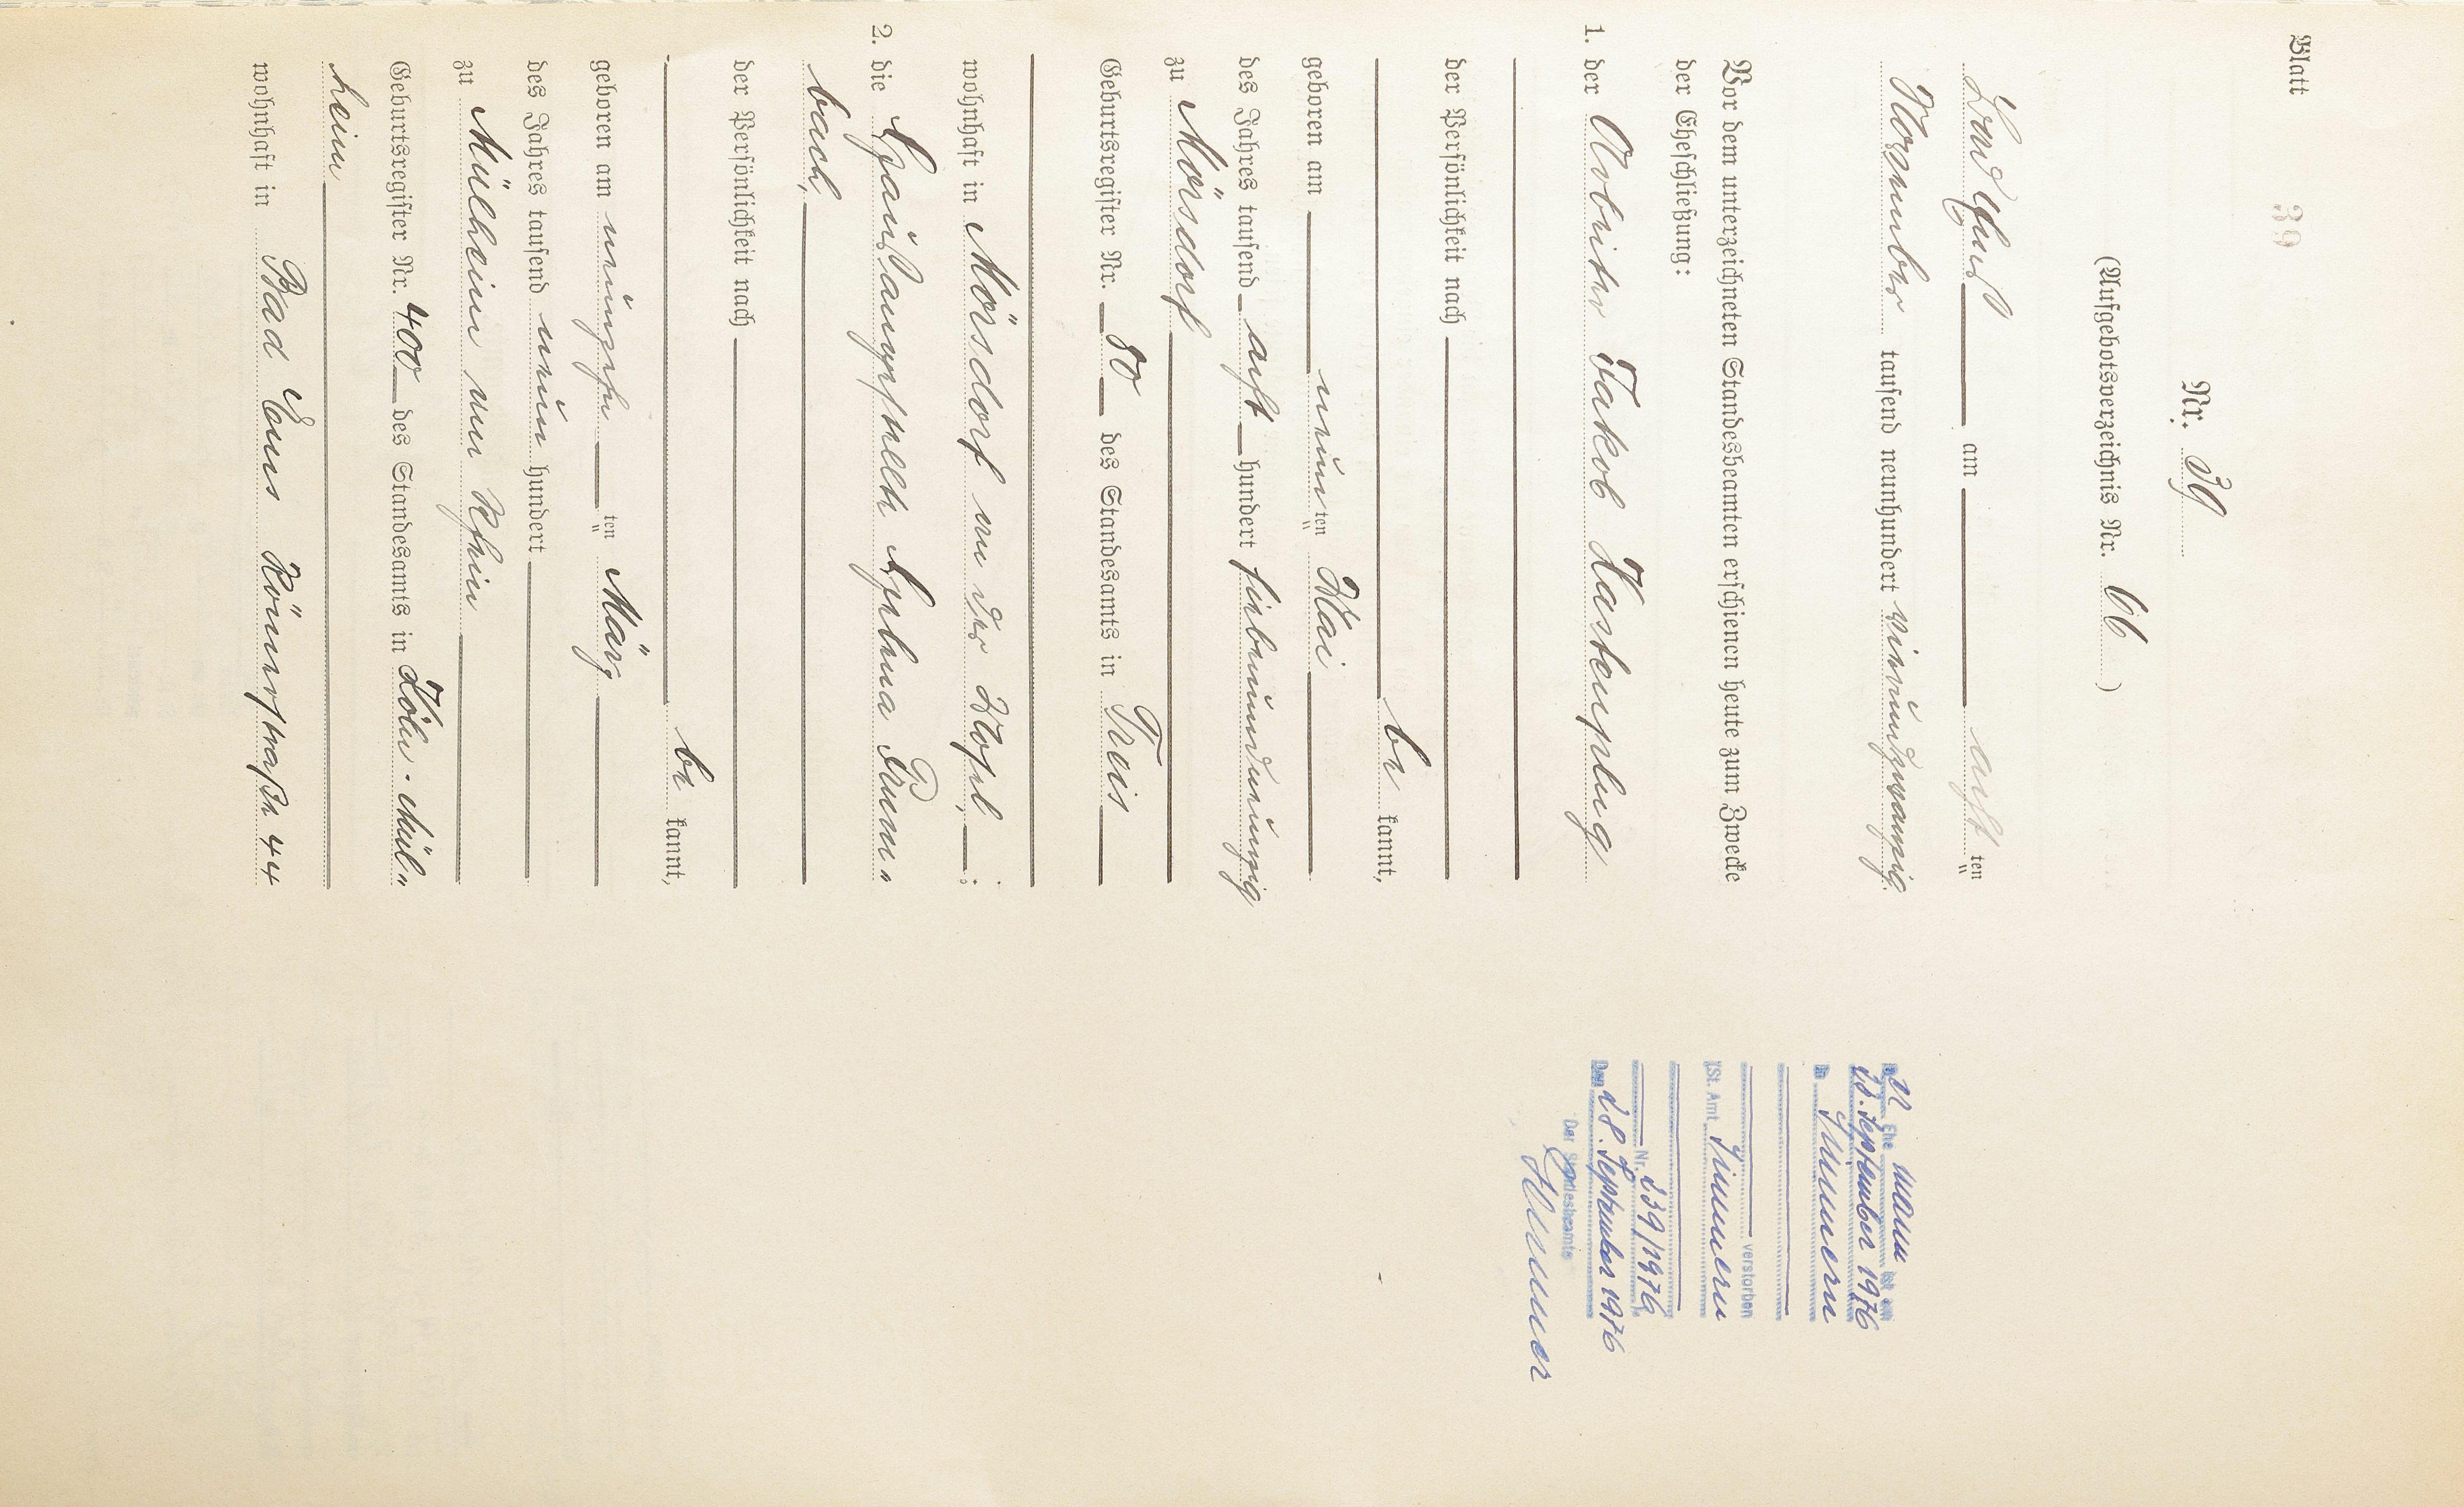 Blatt 39
Nr. 39
(Aufgebotsverzeichnis Nr. 66)
Bad Ems am acht ten
November tausend neunhundert vierundzwanzig
Vor dem unterzeichneten Standesbeamten erschienen heute zum Zwecke
der Eheschließung:
1. der Arbeiter Jakob Kastenplug
der Persönlichkeit nach
be kannt,
geboren am neun ten Mai
des Jahres tausend acht hundert siebenundneunzig
zu Mörsdorf
Geburtsregister Nr. 80 des Standesamts in Treis
wohnhaft in Mörsdorf
2. die Hausangestellte Helena Brum„
bach,
der Persönlichkeit nach
be kannt,
geboren am neunzehn ten März
des Jahres tausend neun hundert
zu Mülheim am Rhein
Geburtsregister Nr. 400 des Standesamts in Köln-Mül„
heim
wohnhaft in Bad Ems Römerstraße 44
Ehemann ist am
28. September 1976
in Simmern
verstorben
(St. Amt Simmern
Nr. 239/1976)
Den 28. September 1976
Der Standesbeamte